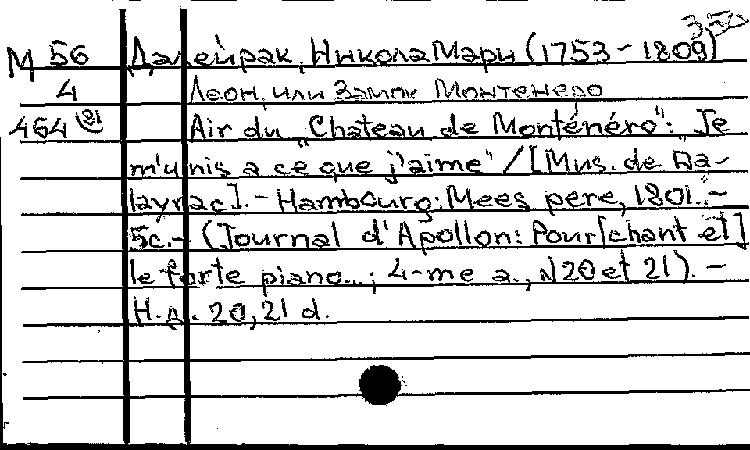 350
М 56 Далейрак, Никола Мари (1753-1809)
4 Леон, или Замок Монтенеро
464 (21) Air du "Chateau de Monténéro": "Je
m'unis a ce que j'aime" / [Mus. de Da-
layrac]. - Hambourg: Mees pere, 1801. -
5c. - (Journal d'Apollon: Pour [chant et]
le forte piano...; 4-me a., N 20 et 21). -
Н.д. 20, 21 d.